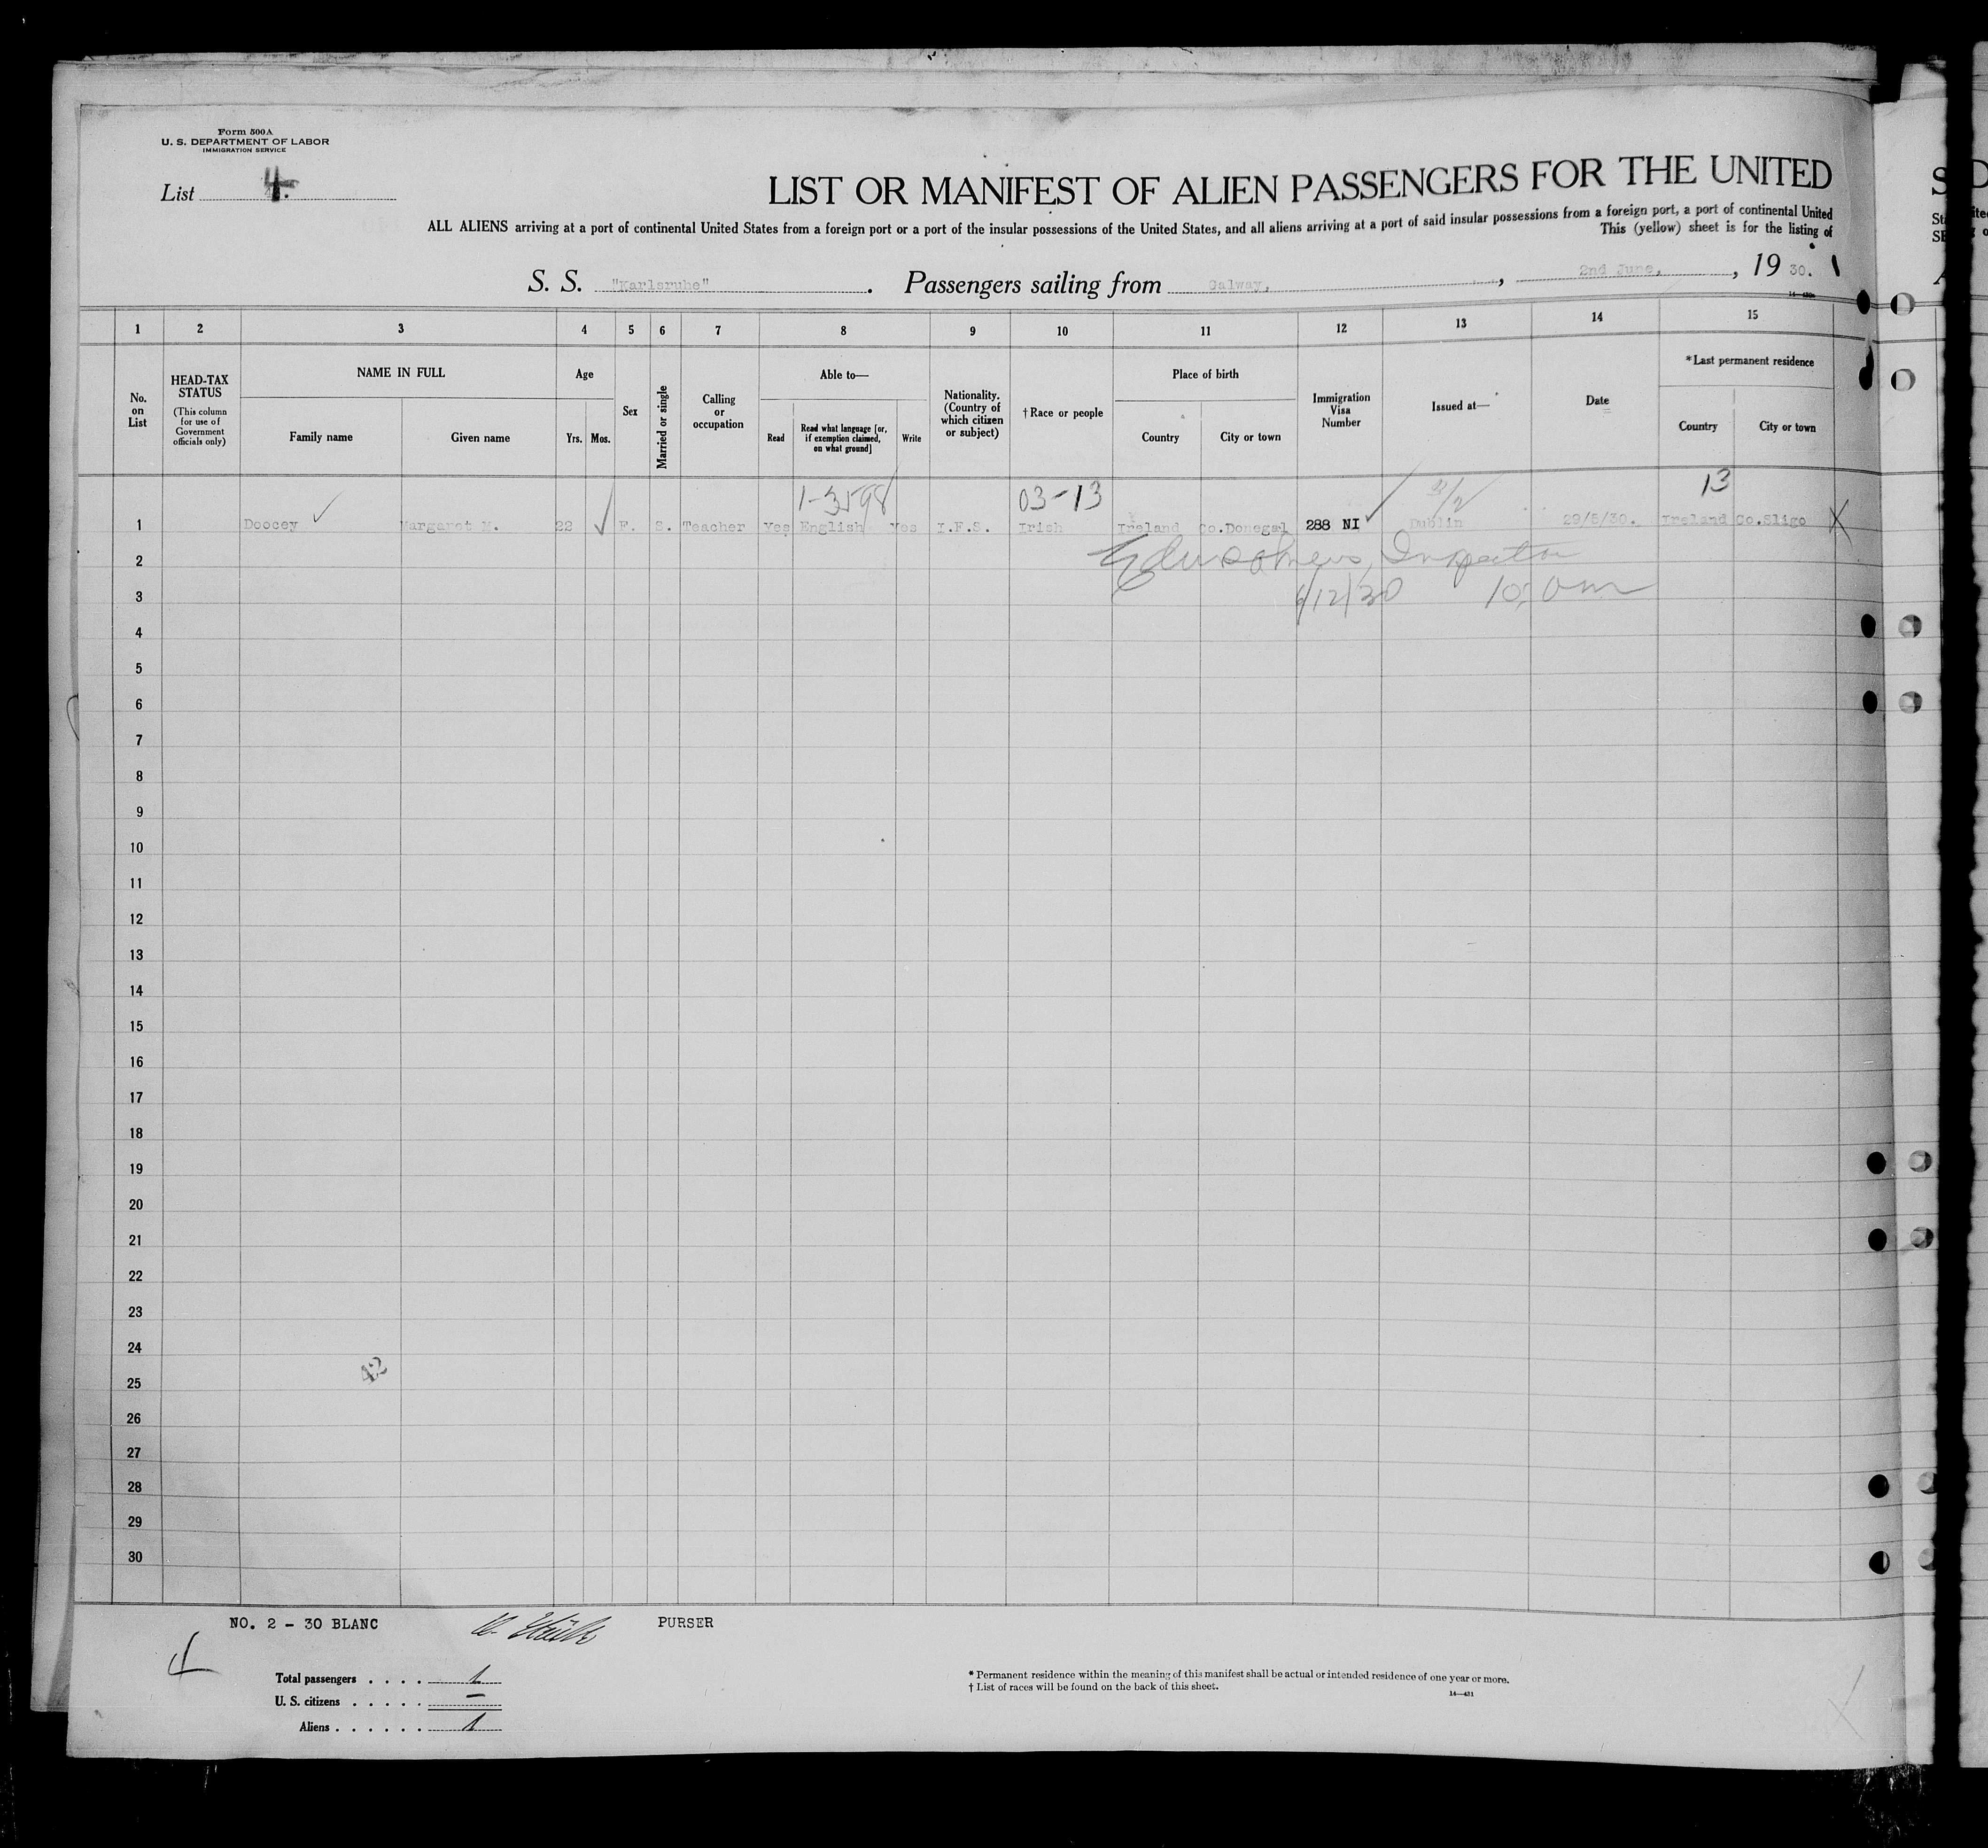 Form 500 A
U. S. DEPARTMENT OF LABOR
IMMIGRATION SERVICE
List 4.
LIST OR MANIFEST OF ALIEN PASSENGERS FOR THE UNITED
ALL ALIENS arriving at a port of continental United States from a foreign port or a port of the insular possessions of the United States, and all aliens arriving at a port of said insular possessions from a foreign port, a port of continental United
This (yellow) sheet is for the listing of
S. S. "Karlsruhe". Passengers sailing from Galway, , 2nd June, , 19 30.
1 2 3 4 5 6 7 8 9 10 11 12 13 14 15
No. on List
HEAD-TAX STATUS
(This column for use of Government officials only)
NAME IN FULL
Family name
Given name
Age
Yrs. Mos.
Sex
Married or single
Calling or occupation
Able to—
Read
Read what language [or, if exemption claimed, on what ground]
Write
Nationality. (Country of which citizen or subject)
†Race or people
Place of birth
Country
City or town
Immigration Visa Number
Issued at—
Date
*Last permanent residence
Country
City or town
1-3598 03-13 13
1 Doocey Margaret M. 22 F. S. Teacher Yes English Yes I.F.S. Irish Ireland Co.Donegal 288 NI Dublin 29/5/30. Ireland Co.Sligo X
2 Inspector
3 6/12/30 10, am
4
5
6
7
8
9
10
11
12
13
14
15
16
17
18
19
20
21
22
23
24
25
26
27
28
29
30
42
NO. 2 - 30 BLANC PURSER
Total passengers . . . . 1
U. S. citizens . . . . . —
Aliens . . . . . . 1
* Permanent residence within the meaning of this manifest shall be actual or intended residence of one year or more.
† List of races will be found on the back of this sheet.
14—431